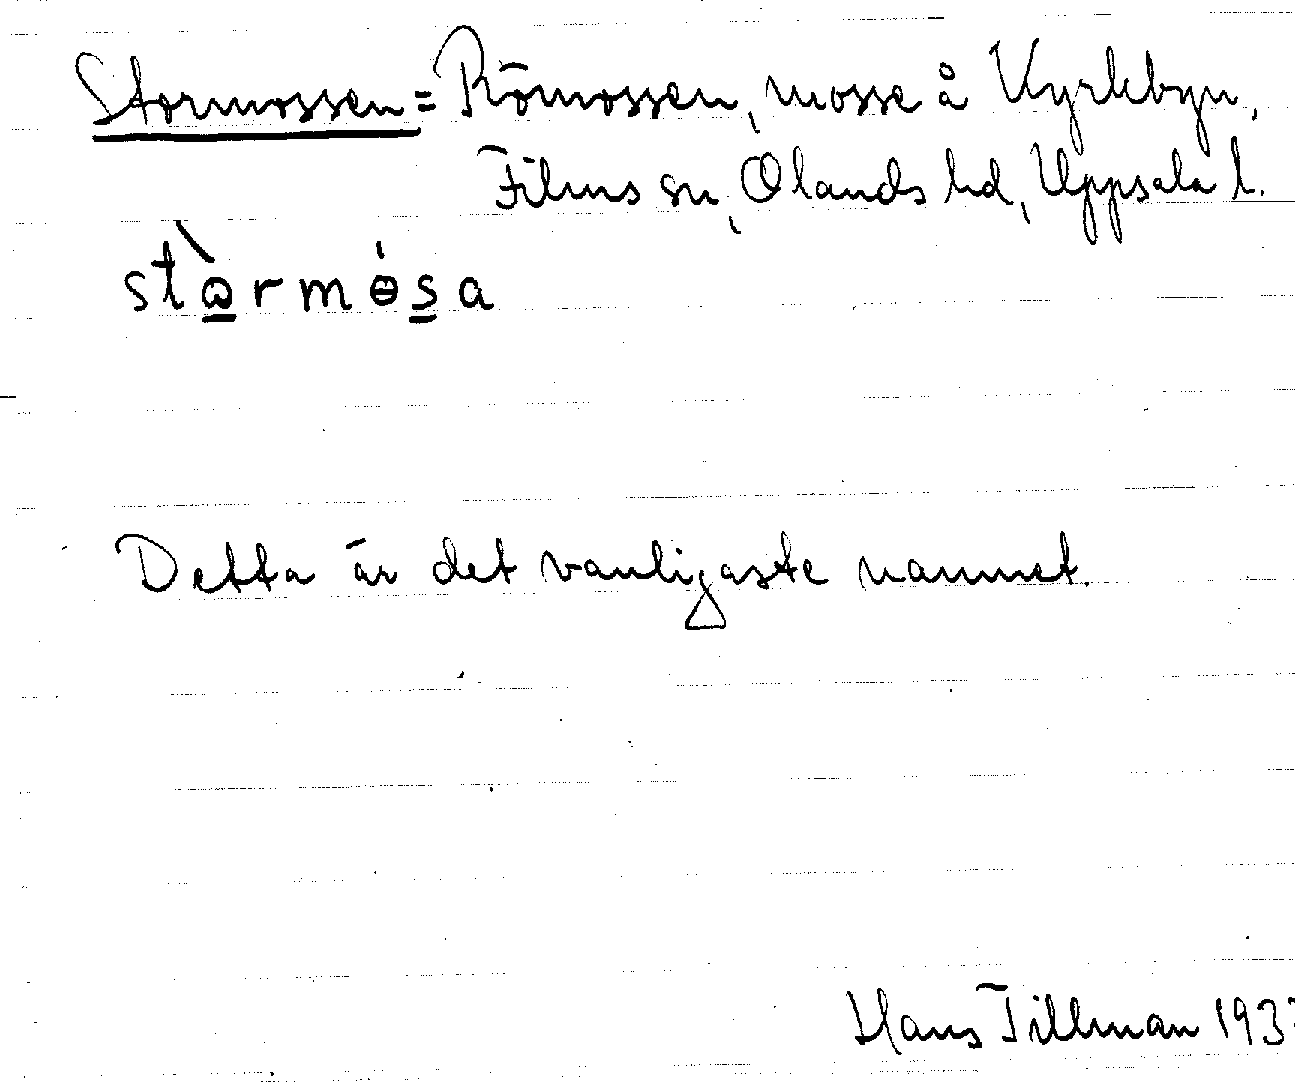 Stormossen = Römossen, mosse å Kyrkbyn,
Films sn, Olands hd, Uppsala l.
stɷ̀rmɵ́sa
Detta är det vanligaste namnet.
Hans Tillman 193